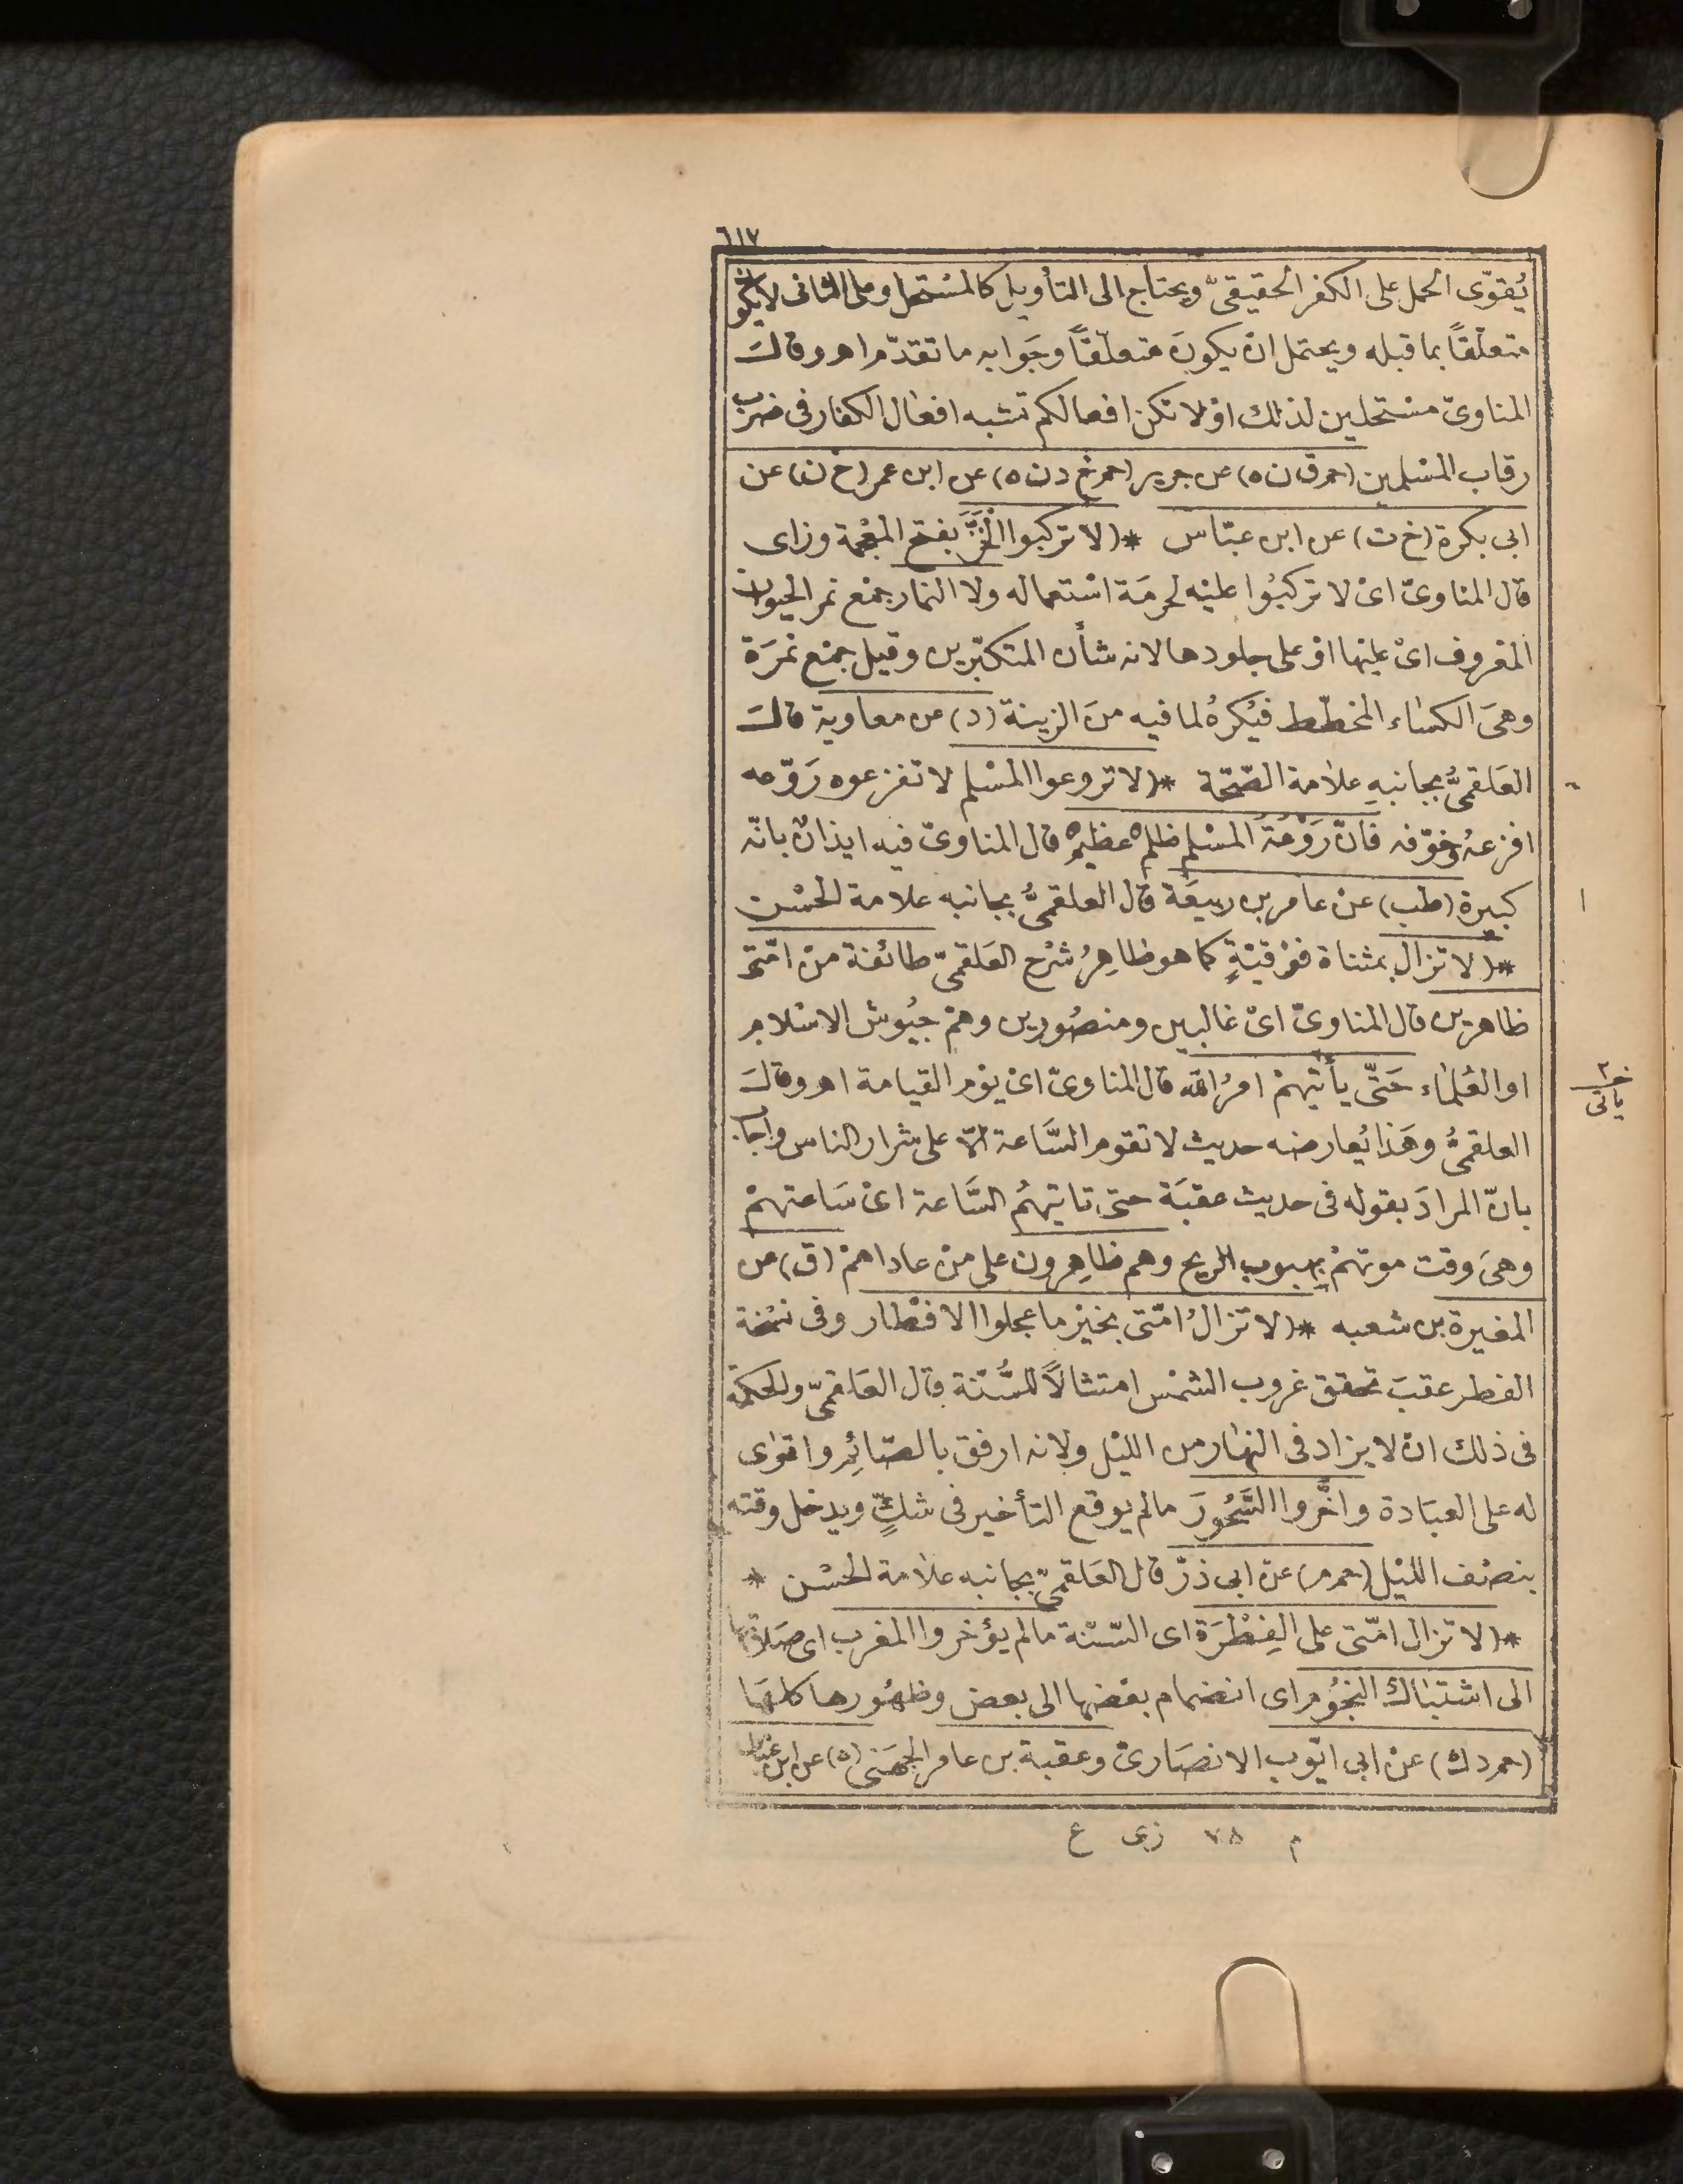 ٦١٧
يُقوّى الحمل على الكفر الحقيقىّ ويحتاج الى التأويل كالمستحل وعلى الثانى لا يكون
متعلّقاً بما قبله ويحتمل انْ يكونَ متعلّقاً وجَوابه ما تقدّم اه وقالَ
المناوىّ مستحلين لذلك اوْ لا تكن افعالكم تشبه افعال الكفار فى ضرب
رقاب المسْلمين (حم ق ن ه) عن جرير (حم خ د ن ه) عن ابن عمر (خ ن) عن
ابى بكرة (خ ت) عن ابن عبّاس * (لا تركبوا الْخَزَّ بفتح المعْجمة وزاى
قال المناوىّ اىْ لا تركبُوا عليْه لحرمَة اسْتعماله ولا النمار جمْع نمر الحيوان
المعْروف اىْ عليْها اوْ على جلودها لانه شأن المتكبّرين وقيل جمْع نمرَة
وهىَ الكسَاء المخطّط فيُكرهُ لما فيه منَ الزينة (د) عن معاوية قالَ
العَلقمىُّ بجانبهِ علامة الصّحّة * (لا تروعوا المسْلم لا تفزعوه رَوّعه
افزعهُ وخوّفه فانّ رَوْعَةَ المسْلم ظلمٌ عظيمٌ قال المناوىّ فيه ايذانٌ بانّه
كبيرة (طب) عنْ عامر بن ربيعَة قال العلقمىُّ بجانبه علامة الحسْن
* (لا تزال بمثناة فوْقيّةٍ كما هو ظاهِرُ شرْح العَلقمىّ طائفة منْ امّتى
ظاهرين قال المناوىّ اىْ غالبين ومنصُورين وهمْ جيُوش الاسْلام
او العُلمَاء حَتّى يأتيَهمْ امرُ الله قال المناوىّ اىْ يوْم القيامة اه وقالَ
العلقمىُّ وهَذا يُعارضه حديث لا تقوم السَّاعة الّا على شرار الناس واجاب
بانّ المرادَ بقوله فى حديث عقبَة حتى تاتيهُم السَّاعة اىْ سَاعتهمْ
وهىَ وقت موتهمْ بهبوب الريح وهم ظاهِرون على منْ عاداهمْ (ق) عن
المغيرة بن شعبه * (لا تزالُ امّتى بخيْر ما عجلوا الافطار وفى نسْخة
الفطر عقبَ تحقق غروب الشمْس امتثالاً للسُّنّة قال العَلقمىّ والحكمة
فى ذلك انْ لا يزاد فى النهار من الليْل ولانه ارفق بالصّائِم واقوى
له على العبَادة واخَّروا السَّحُورَ ما لم يوقع التأخير فى شكٍّ ويدخل وقته
بنصْف الليْل (حم م) عنْ ابى ذرّ قال العَلقمىّ بجانبه علامة الحسْن *
* (لا تزال امّتى على الفِطْرَة اى السّنّة ما لم يؤخروا المغرب اى صَلاتها
الى اشتبَاك النجُوم اى انضمام بعْضها الى بعض وظهُورها كلهَا
(حم د ك) عنْ ابى ايّوب الانصَارىّ وعقبة بن عامر الجهَنى (ه) عن ابن عبّاس
م ٧٨ زى ع
ياتى